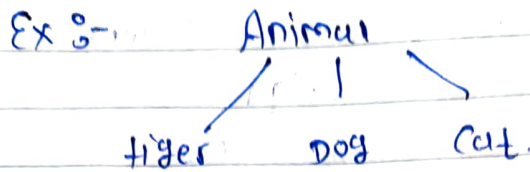 Ex :- Animal
tiger Dog Cat.